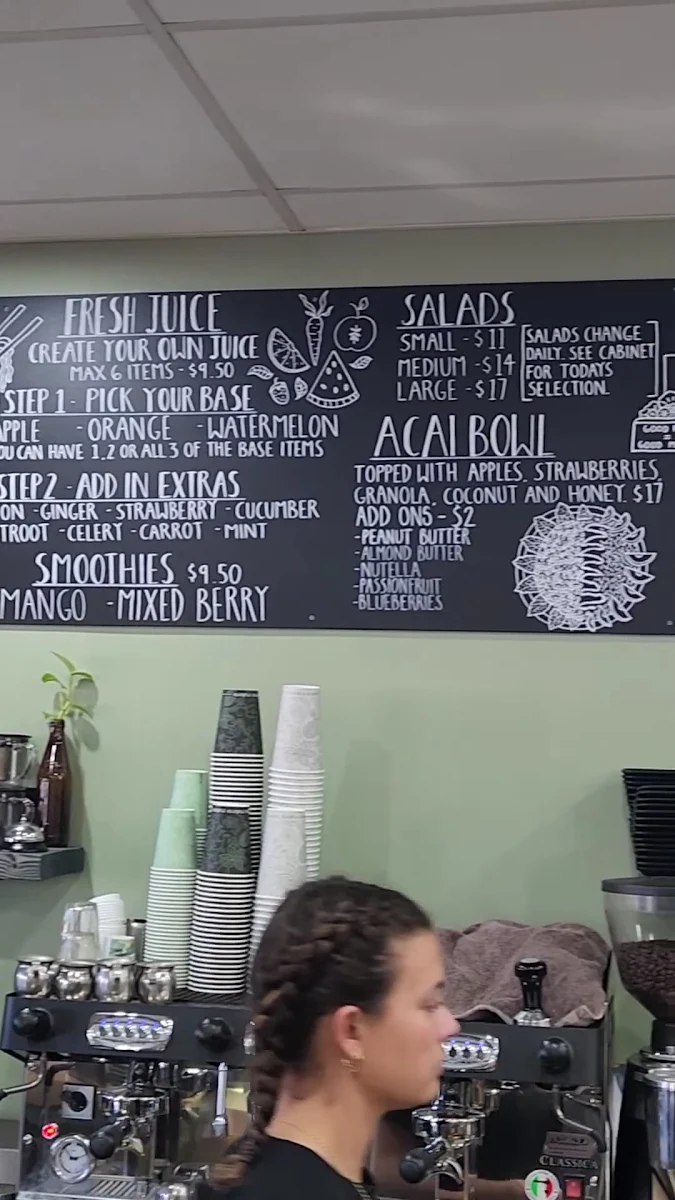 FRESH JUICE
CREATE YOUR OWN JUICE
MAX 6 ITEMS - $9.50
STEP 1 - PICK YOUR BASE
APPLE - ORANGE - WATERMELON
YOU CAN HAVE 1, 2 OR ALL 3 OF THE BASE ITEMS
STEP 2 - ADD IN EXTRAS
ON - GINGER - STRAWBERRY - CUCUMBER
TROOT - CELERY - CARROT - MINT
SMOOTHIES $9.50
MANGO - MIXED BERRY
SALADS
SMALL - $11
MEDIUM - $14
LARGE - $17
SALADS CHANGE
DAILY. SEE CABINET
FOR TODAYS
SELECTION.
ACAI BOWL
TOPPED WITH APPLES, STRAWBERRIES,
GRANOLA, COCONUT AND HONEY. $17
ADD ONS - $2
-PEANUT BUTTER
-ALMOND BUTTER
-NUTELLA
-PASSIONFRUIT
-BLUEBERRIES
GOOD
=
GOOD
CLASSICA